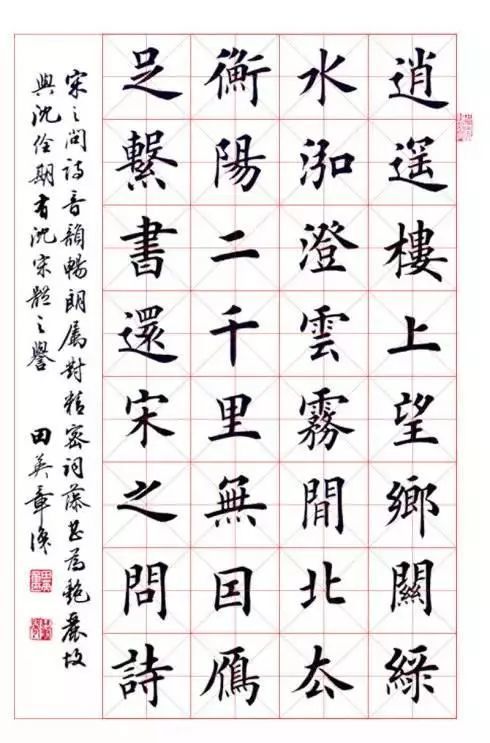 逍遥樓上望鄉關綠
水泓澄雲霧間北厺
衡陽二千里無囙鴈
足繫書還宋之問詩
宋之问詩音韻暢朗屬對精密词藻甚為艷麗故
與沈佺期有沈宋體之譽 田英章